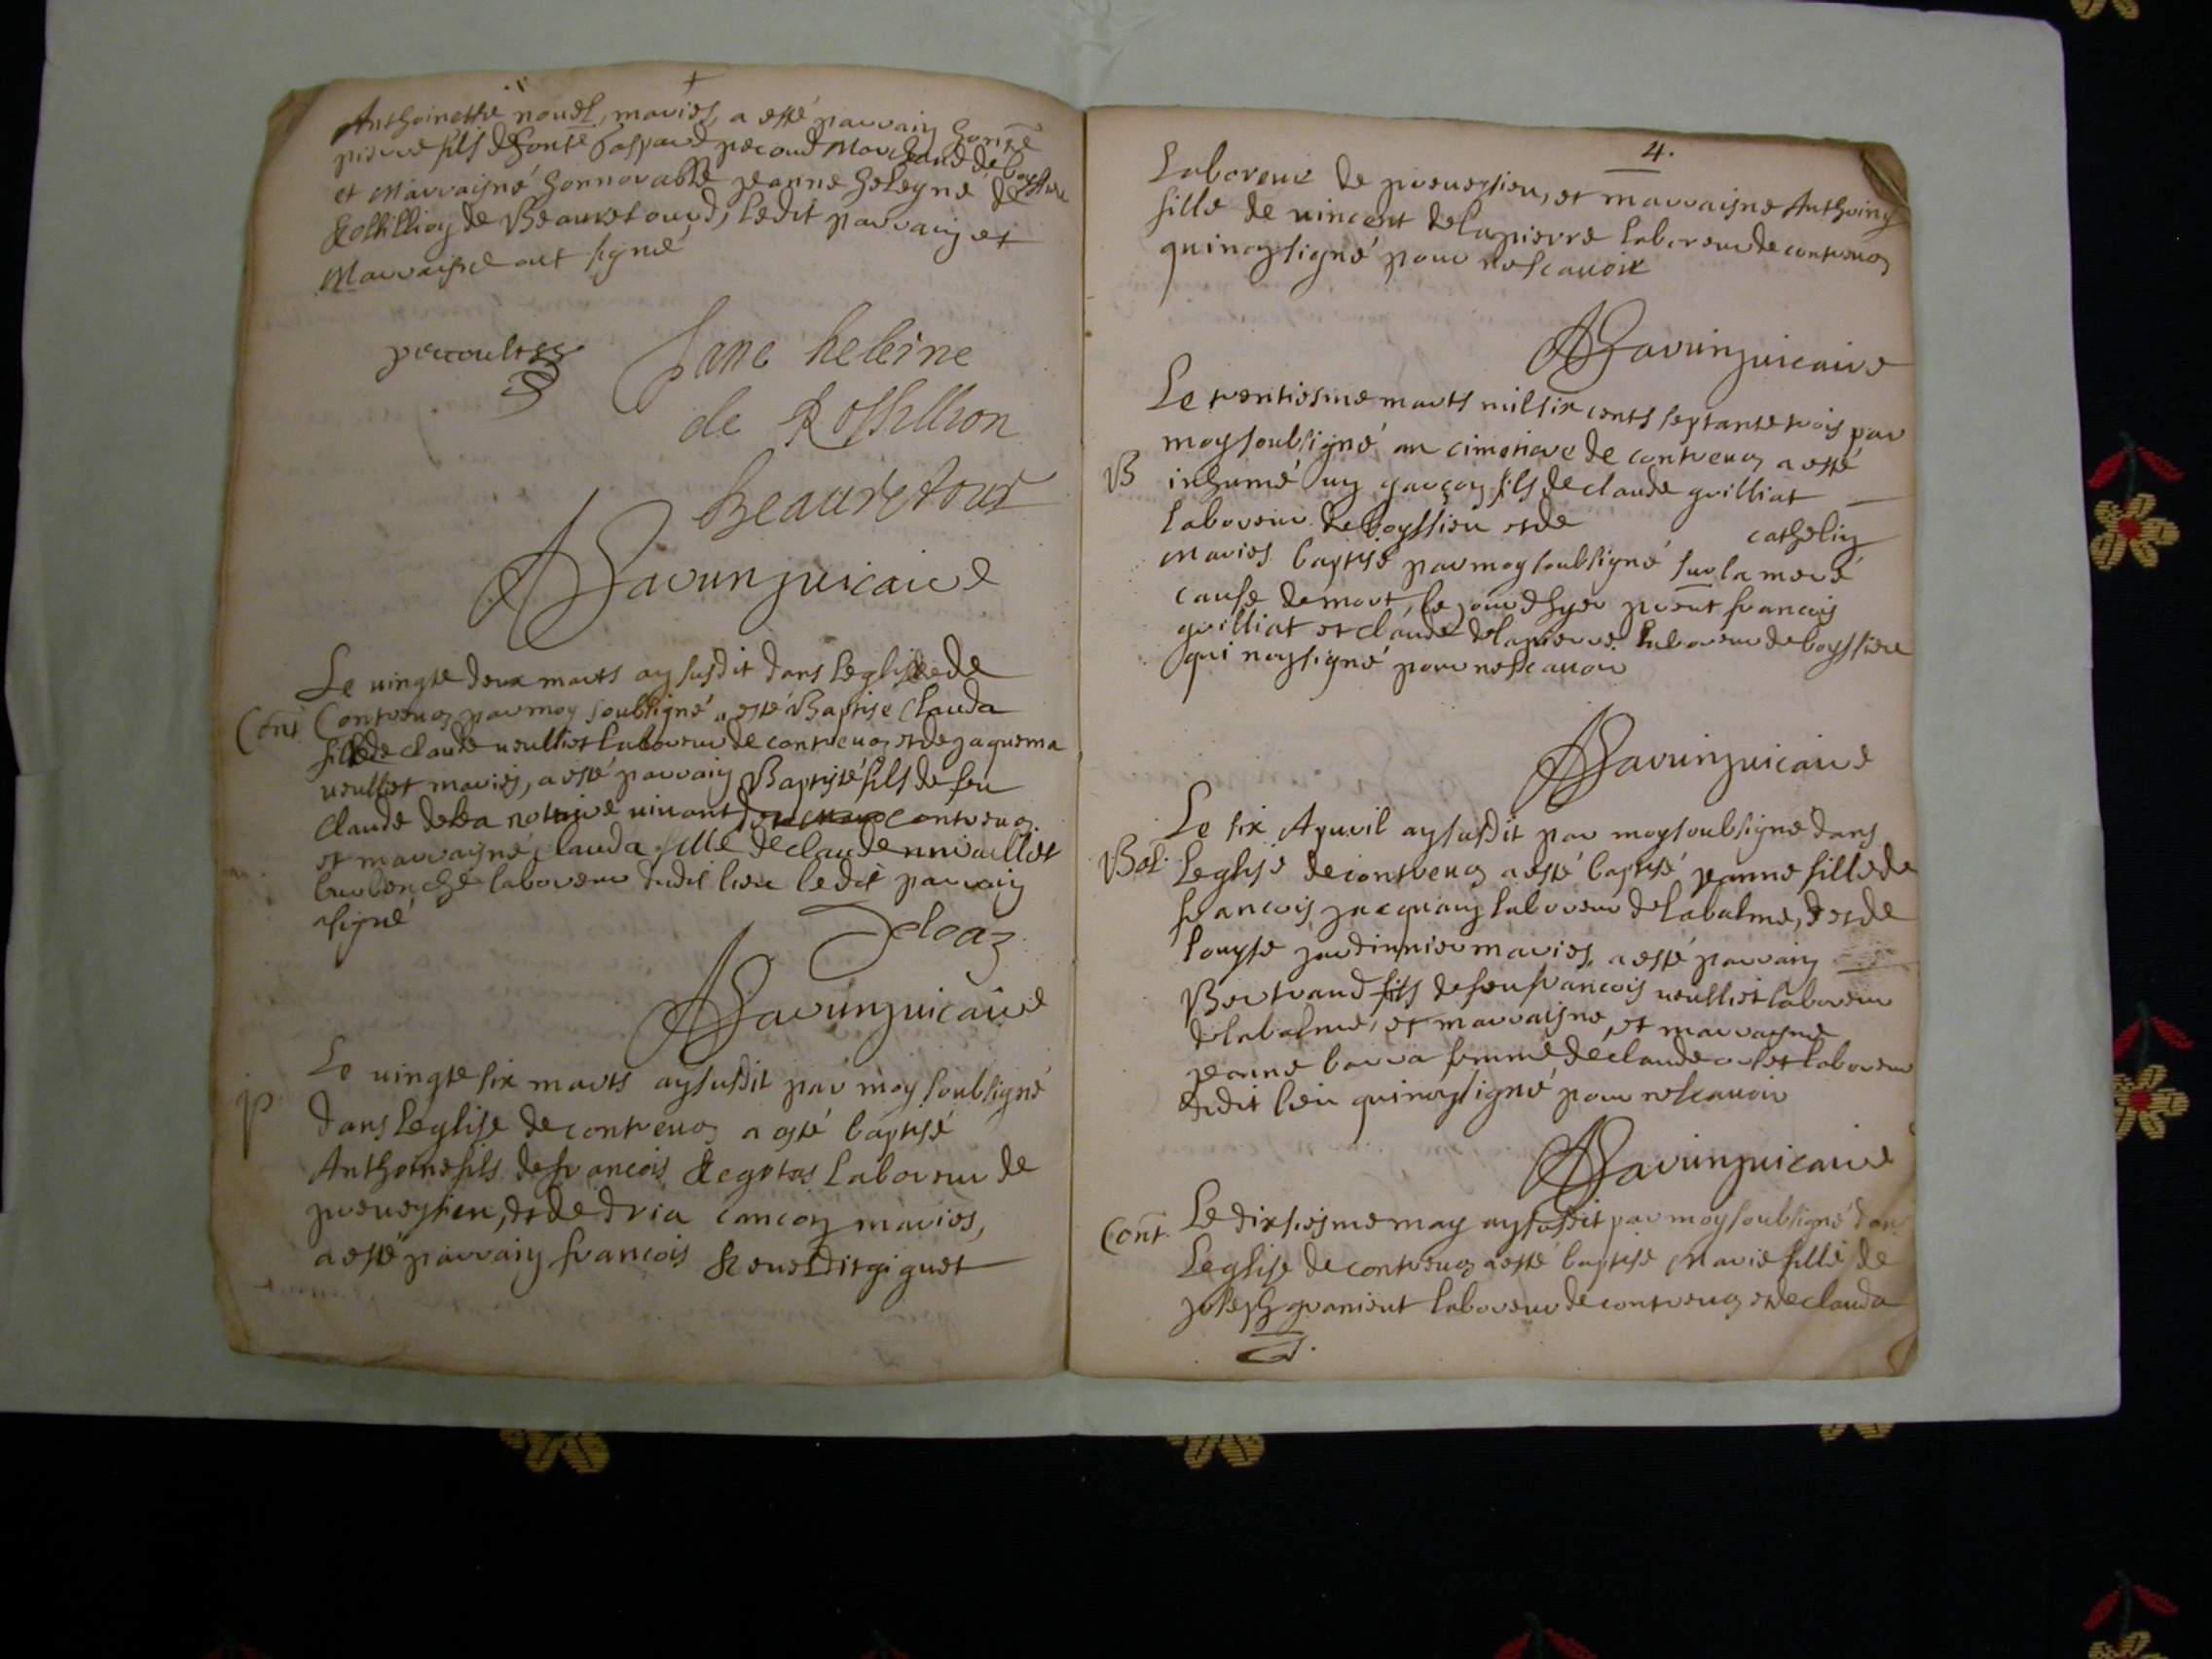 Anthoinette nouel, mariés, a esté parrain honnte
pierre fils d'honte Gaspard pecoud Marchand de boyssieu
et Marraigne honnorable jeanne heleyne de
Rossillion de Beauretourd, ledit parrain et
Marraigne ont signé
Jane heleine
de Rossillion
beauretour
A Savarin vicaire
Le vingte deux marts an susdit dans leglise de
Cont Contrevoz par moy soubsigné a esté Baptisé Clauda
fille de claude veulliet laboreur de contrevoz et de jaquema
veulliet mariés, a esté parrain Baptiste fils de feu
Claude deloa notaire vivant contrevoz
et marraigne Clauda fille de claude
laboreur dudit lieu ledit parrain
a signé
Deloaz
A Savarin vicaire
Le vingte six marts an susdit par moy soubsigné
P dans leglise de contrevoz a esté baptisé
Anthoine fils de francois laboreur de
preveysieu, et de dria cancon mariés,
a esté parrain francois Revel dit giguet
4.
Laboreur de preveysieu, et marraigne Anthoine
fille de vincent delapierre laboreur de contrevoz
qui non signé pour ne scavoir
A Savarin vicaire
Le trentiesme marts mil six cents septante trois par
moy soubsigné au cimetiere de contrevoz a esté
B inhumé un garçon fils de claude guilliat
laboreur de boyssieu et de cathelin
mariés baptisé par moy soubsigné sur la mere
cause de mort, le jour d'hyer present francois
guilliat et claude delapierre laboreur de boyssieu
qui non signé pour ne scavoir
A Savarin vicaire
Le six Apvril an susdit par moy soubsigné dans
Bal. Leglise de contrevoz a esté baptisé jeanne fille de
francois jacquain laboreur de labalme, et de
louyse jardinnier mariés, a esté parrain
Bertrand fils de feu francois veulliet laboreur
de labalme, et marraigne, et marraigne
jeanne barra femme de claude laboreur
dudit lieu qui non signé pour ne scavoir
A Savarin vicaire
Cont. Le dixsiesme may an susdit par moy soubsigné dans
Leglise de contrevoz a esté baptisé Marie fille de
joseph laboreur de contrevoz et de clauda